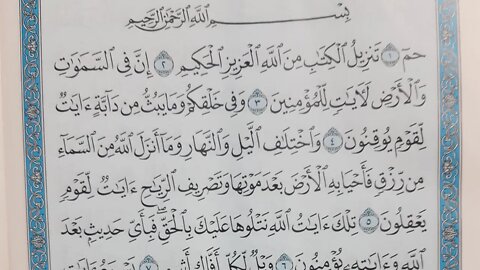 بِسْمِ ٱللَّهِ ٱلرَّحْمَٰنِ ٱلرَّحِيمِ
حمٓ ١ تَنزِيلُ ٱلْكِتَٰبِ مِنَ ٱللَّهِ ٱلْعَزِيزِ ٱلْحَكِيمِ ٢ إِنَّ فِى ٱلسَّمَٰوَٰتِ
وَٱلْأَرْضِ لَءَايَٰتٍ لِّلْمُؤْمِنِينَ ٣ وَفِى خَلْقِكُمْ وَمَا يَبُثُّ مِن دَآبَّةٍ ءَايَٰتٌ
لِّقَوْمٍ يُوقِنُونَ ٤ وَٱخْتِلَٰفِ ٱلَّيْلِ وَٱلنَّهَارِ وَمَآ أَنزَلَ ٱللَّهُ مِنَ ٱلسَّمَآءِ
مِن رِّزْقٍ فَأَحْيَا بِهِ ٱلْأَرْضَ بَعْدَ مَوْتِهَا وَتَصْرِيفِ ٱلرِّيَٰحِ ءَايَٰتٌ لِّقَوْمٍ
يَعْقِلُونَ ٥ تِلْكَ ءَايَٰتُ ٱللَّهِ نَتْلُوهَا عَلَيْكَ بِٱلْحَقِّ ۖ فَبِأَىِّ حَدِيثٍۭ بَعْدَ
ٱللَّهِ وَءَايَٰتِهِۦ يُؤْمِنُونَ ٦ وَيْلٌ لِّكُلِّ أَفَّاكٍ أَثِيمٍ ٧